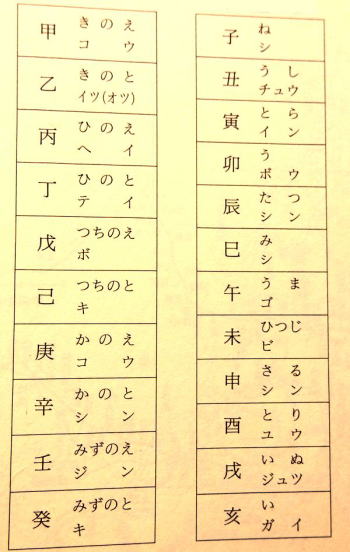 甲 きのえ
コウ
乙 きのと
イツ(オツ)
丙 ひのえ
ヘイ
丁 ひのと
テイ
戊 つちのえ
ボ
己 つちのと
キ
庚 かのえ
コウ
辛 かのと
シン
壬 みずのえ
ジン
癸 みずのと
キ
子 ね
シ
丑 うし
チュウ
寅 とら
イン
卯 う
ボウ
辰 たつ
シン
巳 み
シ
午 うま
ゴ
未 ひつじ
ビ
申 さる
シン
酉 とり
ユウ
戌 いぬ
ジュツ
亥 い
ガイ